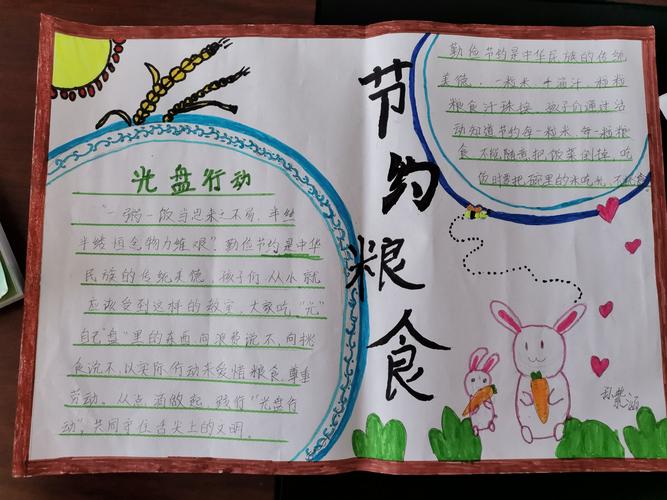 光盘行动
"一粥一饭当思来之不易,半丝
半缕恒念物力维艰"勤俭节约是中华
民族的传统美德,孩子们从小就
应该受到这样的教育,大家吃"光"
自己"盘"里的东西向浪费说不,向挑
食说不,以实际行动来爱惜粮食,尊重
劳动。从点滴做起,践行"光盘行
动",共同守住舌尖上的文明。
节约粮食
勤俭节约是中华民族的传统
美德,一粒米 千滴汗,粒粒
粮食汗珠换,孩子们通过活
动知道节约每一粒米,每一粒粮
食 不能随意把饭菜倒掉,吃
饭时要把碗里的米吃光,不